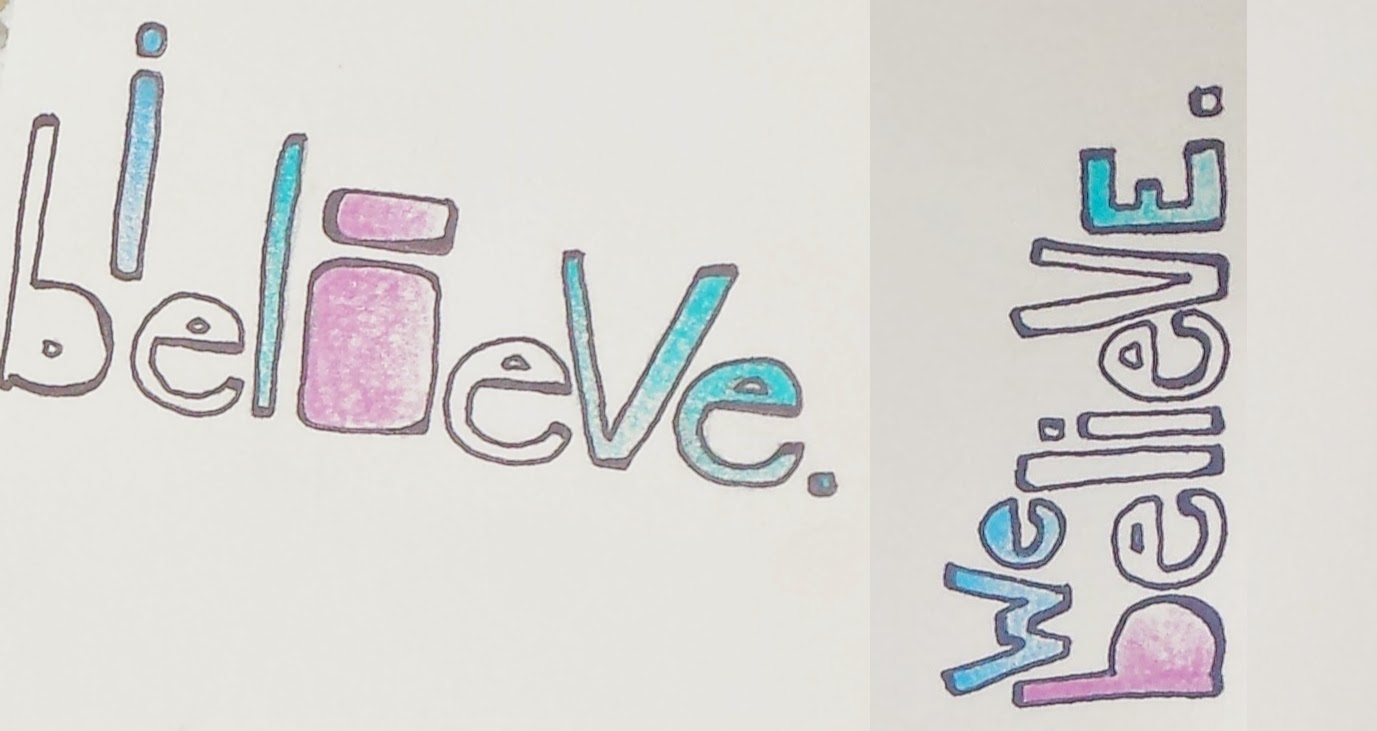 i
believe.
we
believE.